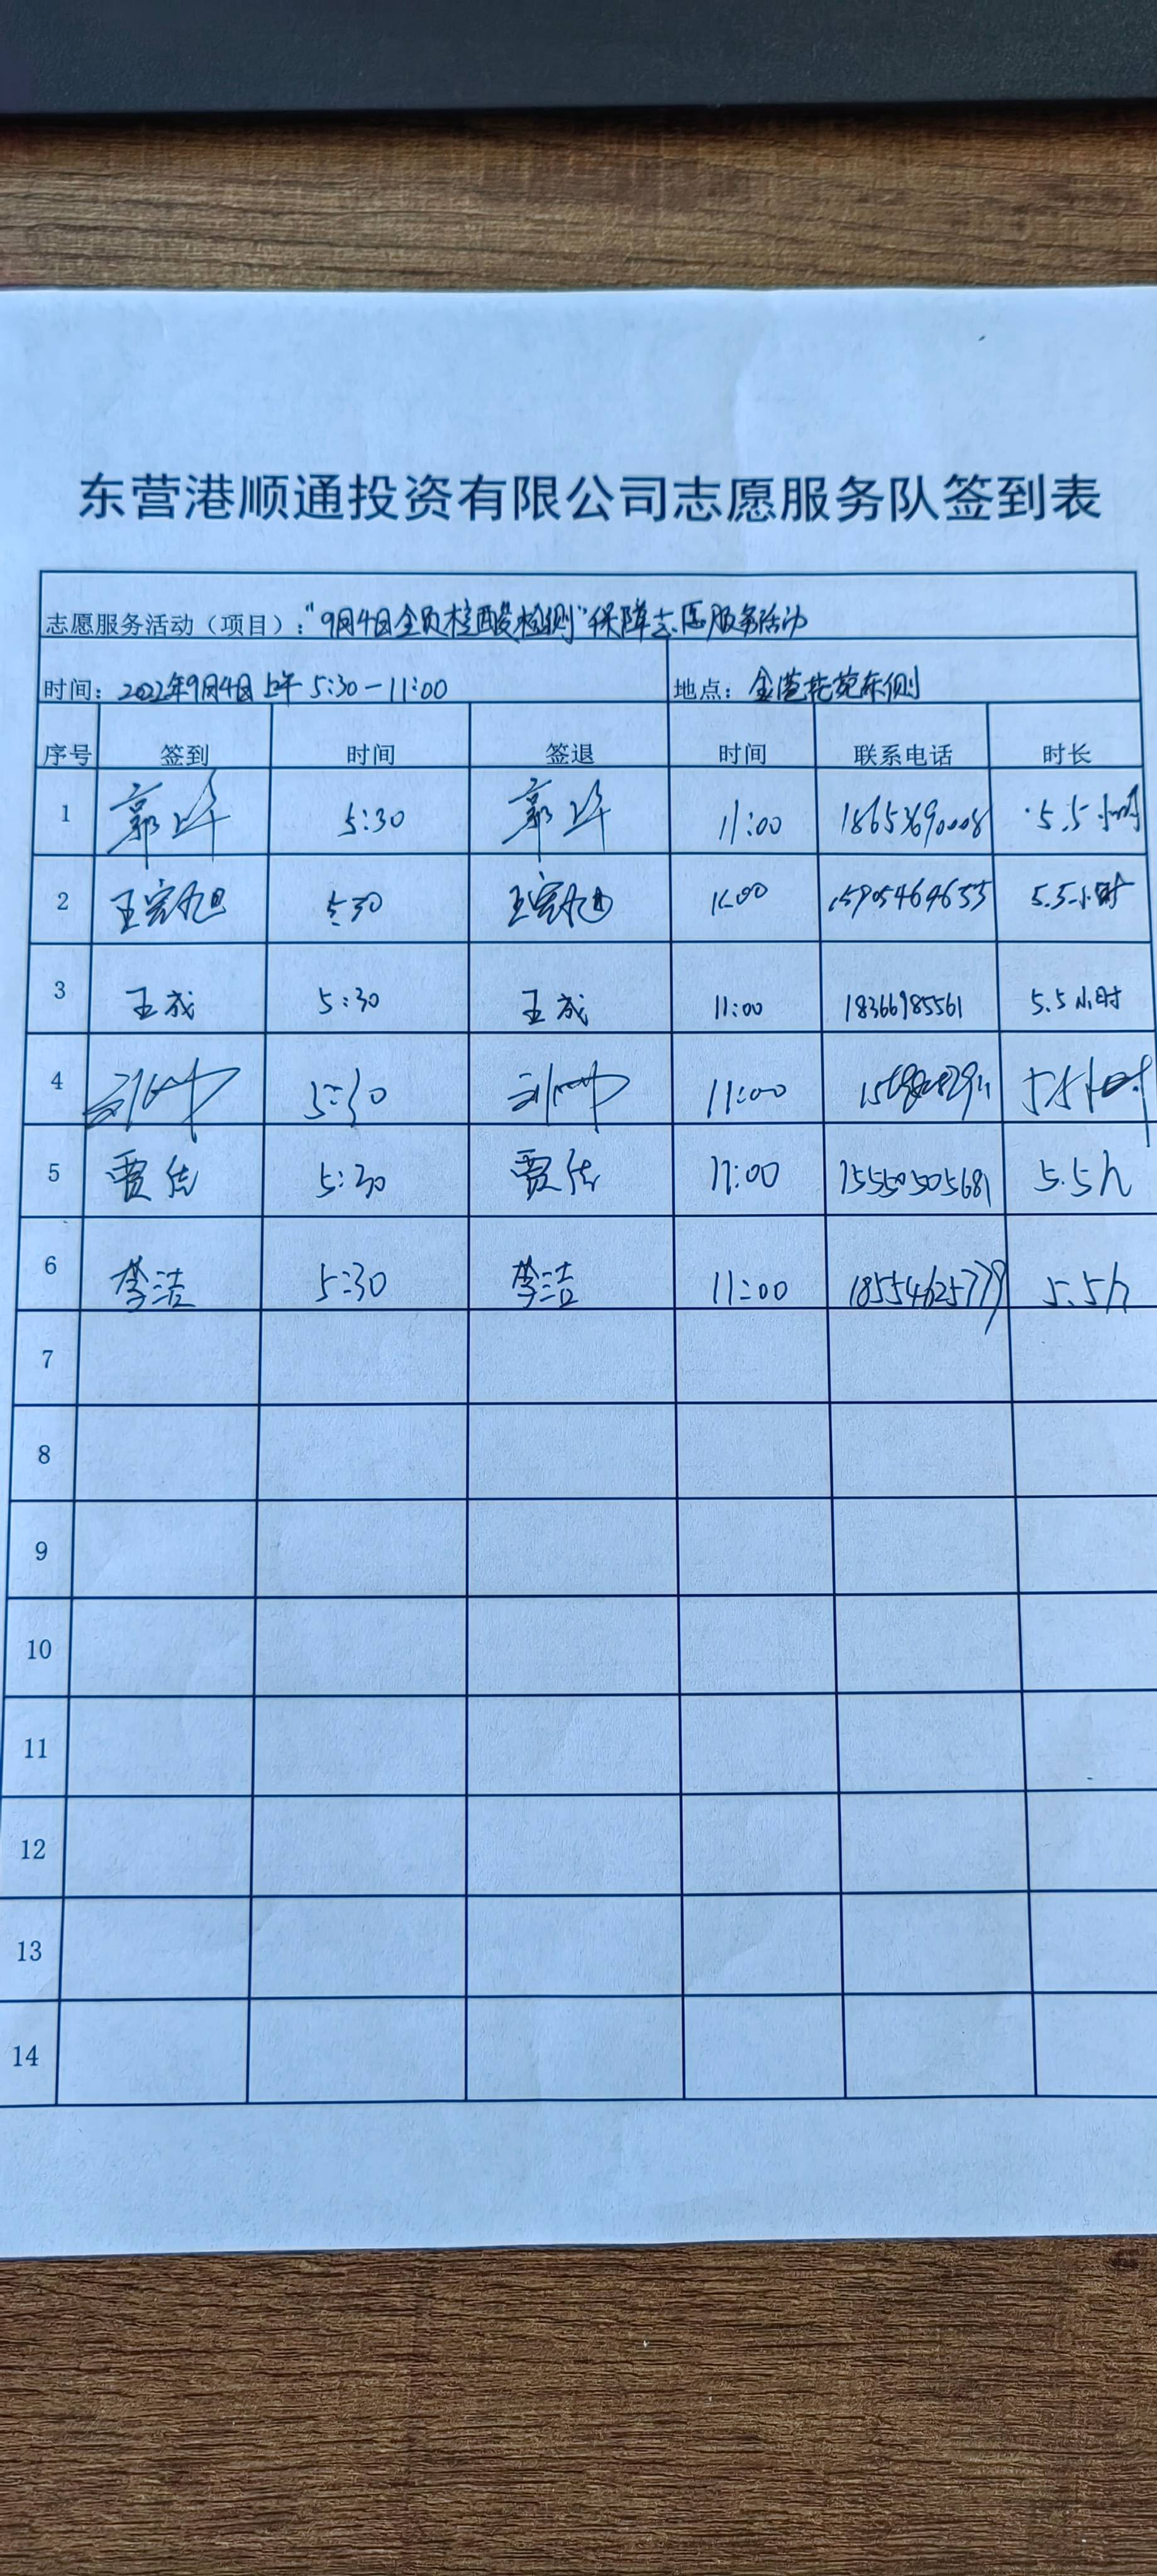 东营港顺通投资有限公司志愿服务队签到表
志愿服务活动（项目）：“9月4日全员核酸检测”保障志愿服务活动
时间：2022年9月4日上午 5:30-11:00 地点：金港花苑东侧
序号 签到 时间 签退 时间 联系电话 时长
1 郭 5:30 郭 11:00 18653690008 5.5小时
2 王宪旭 5:30 王宪旭 11:00 15905464655 5.5小时
3 王成 5:30 王成 11:00 18366985561 5.5小时
4 5:30 11:00 5.5小时
5 贾佳 5:30 贾佳 11:00 15550505681 5.5h
6 李洁 5:30 李洁 11:00 18554625779 5.5h
7
8
9
10
11
12
13
14